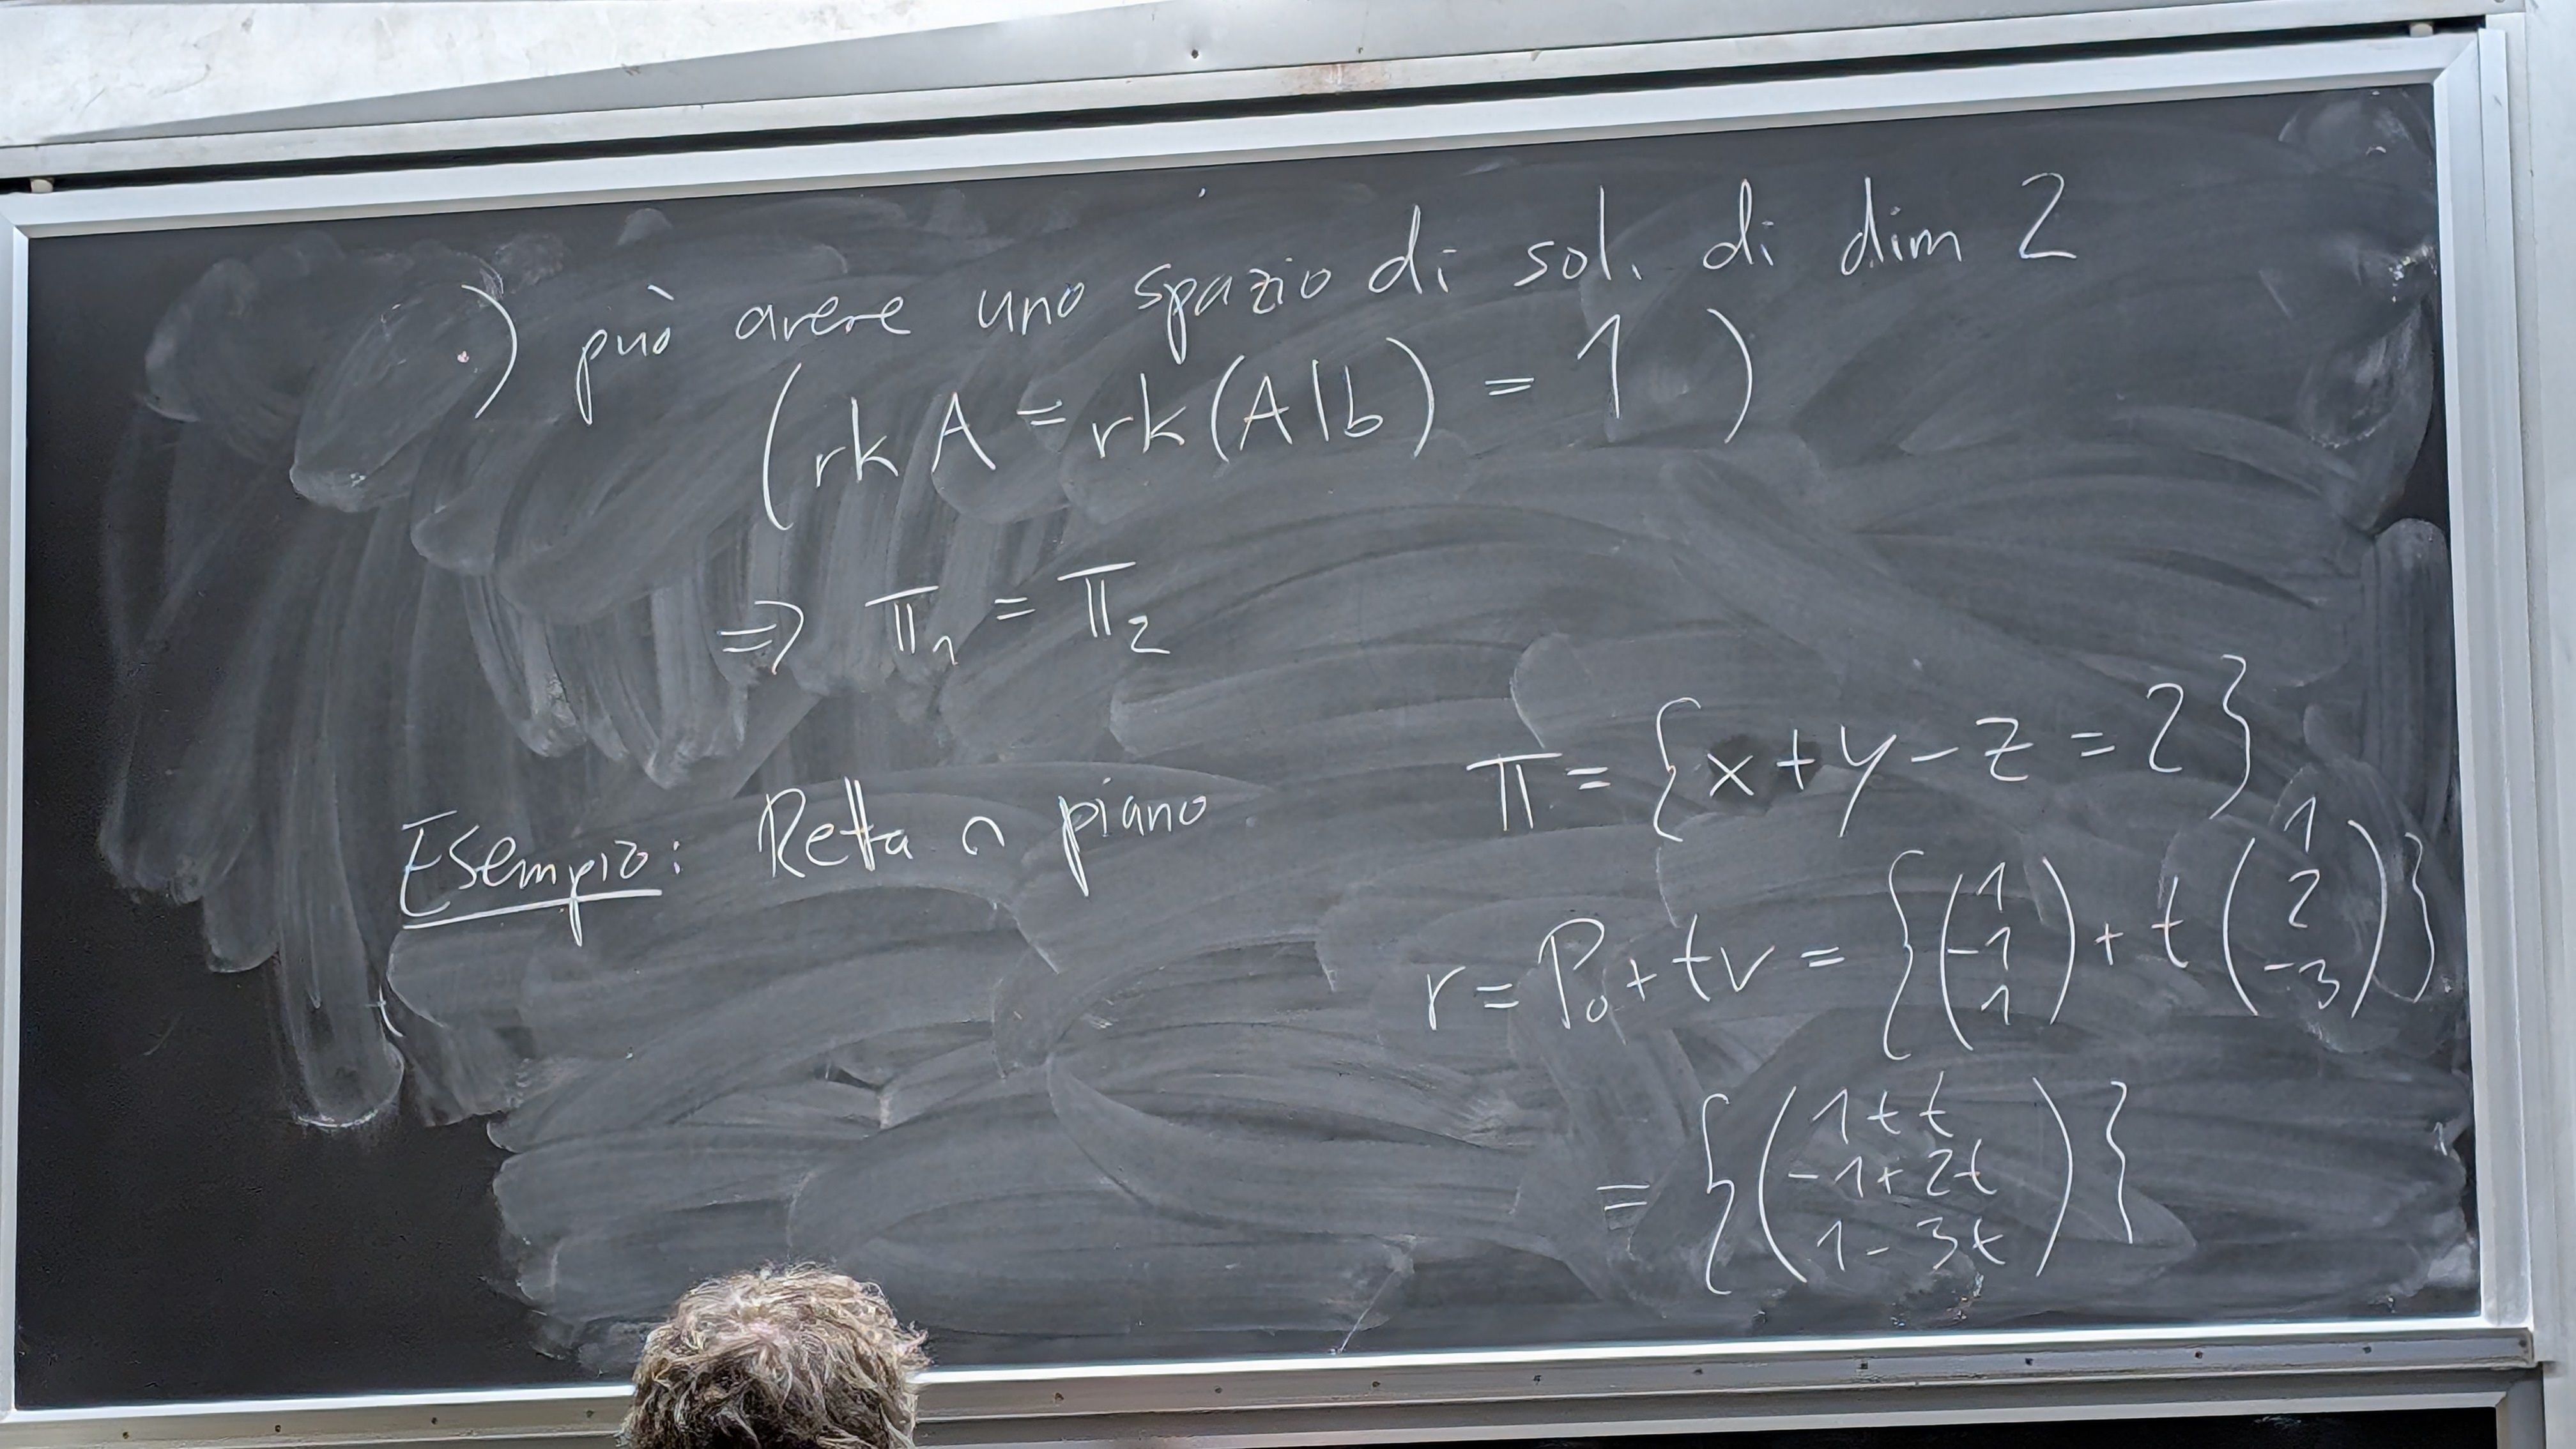 ·) può avere uno spazio di sol. di dim 2
(rk A = rk(A|b) = 1)
⇒ π₁ = π₂
Esempio: Retta ∩ piano
π = {x+y-z = 2}
r = P₀ + tv = {(1 -1 1) + t (1 2 -3)}
= {(1+t -1+2t 1-3t)}